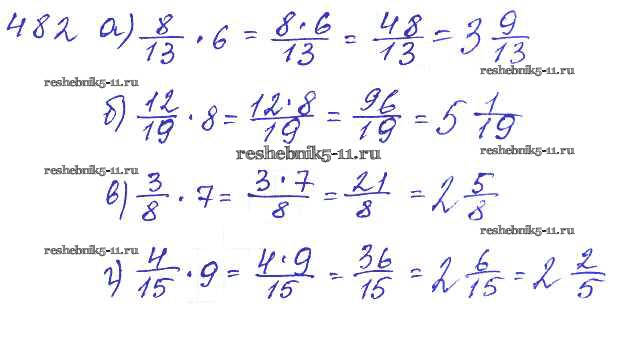 482 а) 8/13 · 6 = 8·6/13 = 48/13 = 3 9/13
reshebnik5-11.ru reshebnik5-11.ru
б) 12/19 · 8 = 12·8/19 = 96/19 = 5 1/19
reshebnik5-11.ru reshebnik5-11.ru
reshebnik5-11.ru
в) 3/8 · 7 = 3·7/8 = 21/8 = 2 5/8
reshebnik5-11.ru reshebnik5-11.ru
г) 4/15 · 9 = 4·9/15 = 36/15 = 2 6/15 = 2 2/5